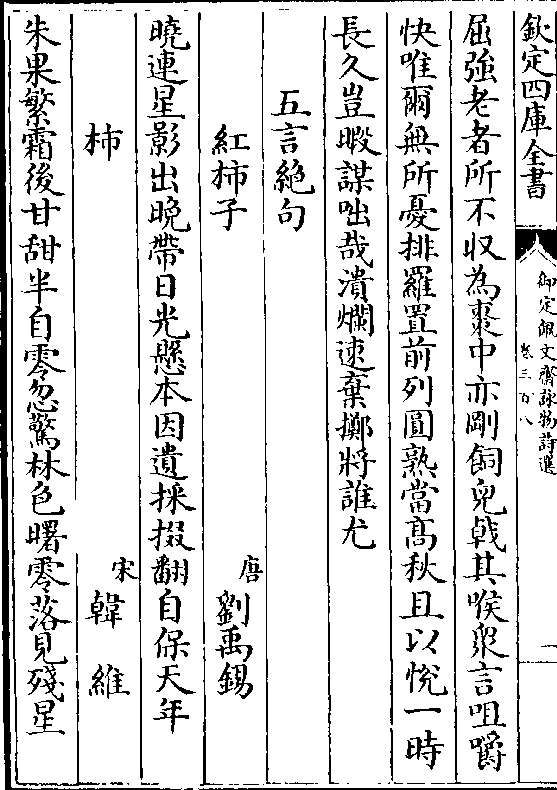 欽定四庫全書
御定佩文齋詠物詩選
卷三百八
一
屈強老者所不収為棗中亦剛飼兒戟其喉衆言咀嚼
快唯爾無所憂排羅置前列圓熟當髙秋且以悅一時
長久豈暇謀咄哉潰爛速棄擲將誰尤
五言絶句
紅柿子
唐 劉禹錫
曉連星影出晚帶日光懸本因遺採掇翻自保天年
柿
宋 韓維
朱果繁霜後甘甜半自零忽驚林色曙零落見殘星